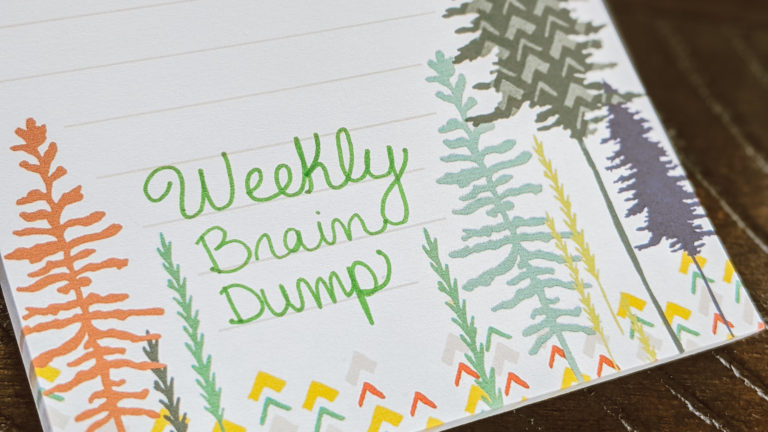 Weekly
Brain
Dump